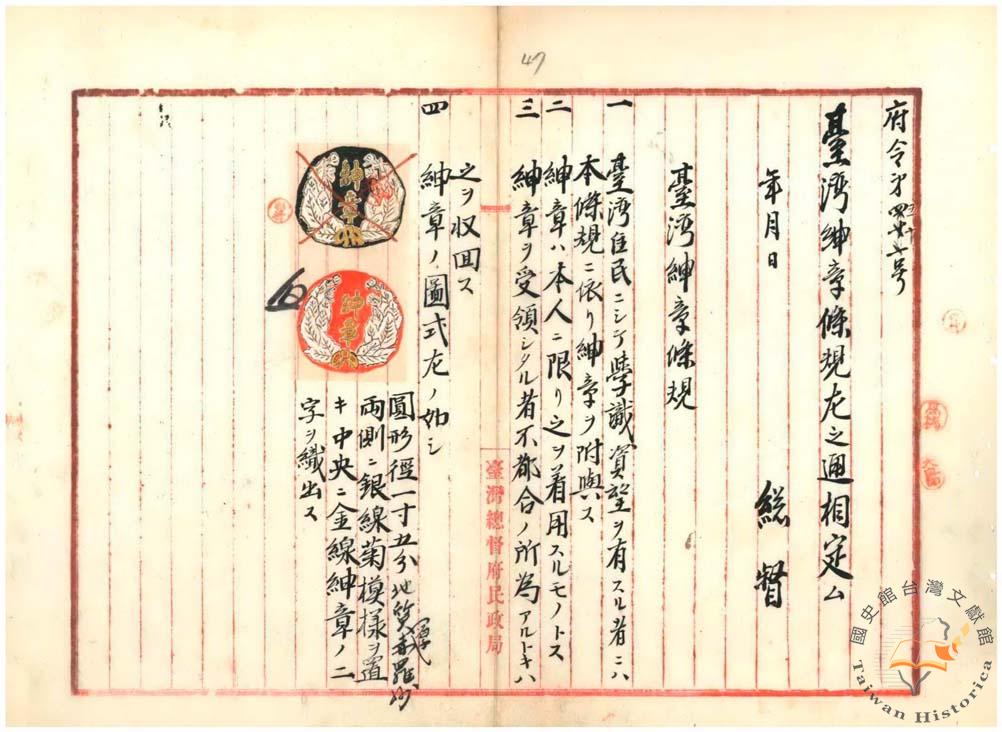 47
府令第四十六号
臺湾紳章條規左之通相定ム
年月日
総督
臺湾紳章條規
一 臺湾住民ニシテ學識資望ヲ有スル者ニハ
本條規ニ依リ紳章ヲ附與ス
二 紳章ハ本人ニ限リ之ヲ着用スルモノトス
三 紳章ヲ受領シタル者不都合ノ所為アルトキハ
之ヲ収回ス
四 紳章ノ圖式左ノ如シ
紳章
紳章
圓形徑一寸五分地質羅紗
両側ニ銀線菊模様ヲ置
キ中央ニ金線紳章ノ二
字ヲ織出ス
臺灣總督府民政局
國史館台灣文獻館
Taiwan Historica